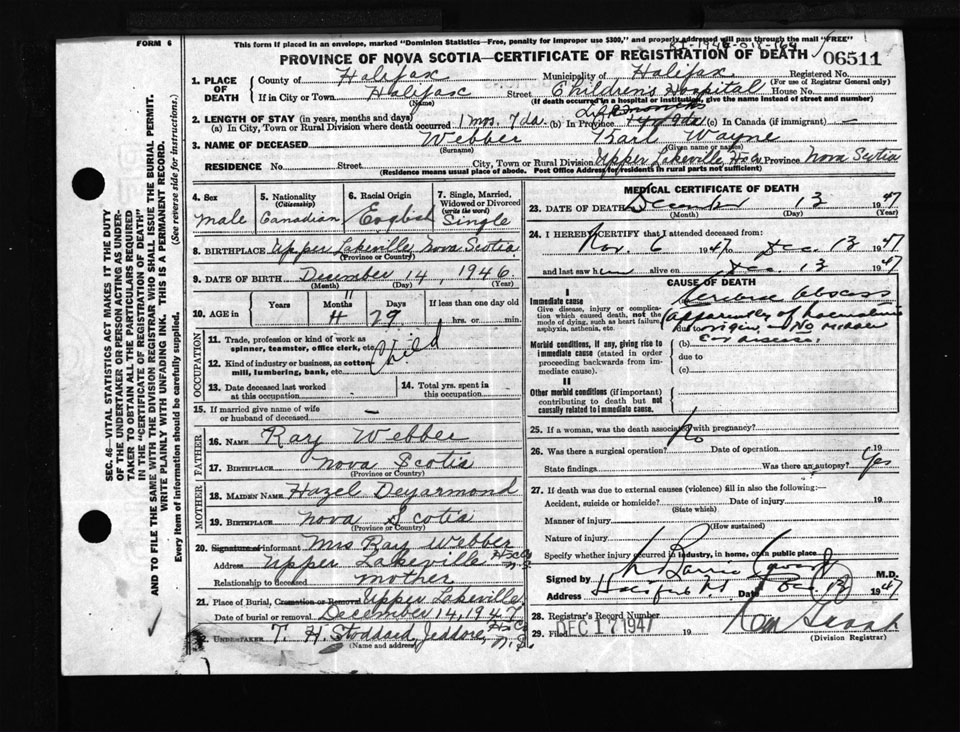 FORM 6
This form if placed in an envelope, marked "Dominion Statistics—Free, penalty for improper use $300," and properly addressed will pass through the mail "FREE"
PROVINCE OF NOVA SCOTIA—CERTIFICATE OF REGISTRATION OF DEATH
06511
1. PLACE OF DEATH
County of Halifax Municipality of Halifax Registered No.
(For use of Registrar General only)
If in City or Town Halifax Street Children's Hospital House No.
(Name) (If death occurred in a hospital or institution, give the name instead of street and number)
2. LENGTH OF STAY (in years, months and days)
(a) In City, Town or Rural Division where death occurred 1 mos. 7 da. (b) In Province (c) In Canada (if immigrant) —
3. NAME OF DECEASED Webber Karl Wayne
(Surname) (Given name or names)
RESIDENCE No. Street City, Town or Rural Division Upper Lakeville, Hx Co Province Nova Scotia
(Residence means usual place of abode. Post Office Address for residents in rural parts not sufficient)
4. Sex
Male
5. Nationality
(Citizenship)
Canadian
6. Racial Origin
English
7. Single, Married, Widowed or Divorced
(write the word)
Single
8. BIRTHPLACE Upper Lakeville, Nova Scotia
(Province or Country)
9. DATE OF BIRTH December 14, 1946
(Month) (Day) (Year)
10. AGE in
Years Months Days If less than one day old
11 29 hrs. or min.
OCCUPATION
11. Trade, profession or kind of work as spinner, teamster, office clerk, etc.
Child
12. Kind of industry or business, as cotton mill, lumbering, bank, etc.
13. Date deceased last worked at this occupation
14. Total yrs. spent in this occupation
15. If married give name of wife or husband of deceased —
FATHER
16. NAME Ray Webber
17. BIRTHPLACE Nova Scotia
(Province or Country)
MOTHER
18. MAIDEN NAME Hazel Deyarmond
19. BIRTHPLACE Nova Scotia
(Province or Country)
20. Signature of informant Mrs Ray Webber
Address Upper Lakeville Hx Co N.S.
Relationship to deceased mother
21. Place of Burial, Cremation or Removal Upper Lakeville
Date of burial or removal December 14, 1947
22. UNDERTAKER T. H. Stoddard, Jeddore, Hx Co N.S.
(Name and address)
MEDICAL CERTIFICATE OF DEATH
23. DATE OF DEATH December 13 1947
(Month) (Day) (Year)
24. I HEREBY CERTIFY that I attended deceased from:
Nov. 6 1947 to Dec. 13 1947
and last saw him alive on Dec. 13 1947
CAUSE OF DEATH
I
Immediate cause
Give disease, injury or complication which caused death, not the mode of dying, such as heart failure, asphyxia, asthenia, etc.
Cerebral abscess
apparently of
due to origin. No middle ear disease.
Morbid conditions, if any, giving rise to immediate cause (stated in order proceeding backwards from immediate cause).
(b)
due to
(c)
II
Other morbid conditions (if important) contributing to death but not causally related to immediate cause.
25. If a woman, was the death associated with pregnancy? No
26. Was there a surgical operation? Date of operation 19
State findings Was there an autopsy? Yes
27. If death was due to external causes (violence) fill in also the following:—
Accident, suicide or homicide? Date of injury 19
(State which)
Manner of injury
(How sustained)
Nature of injury
Specify whether injury occurred in industry, in home, or in public place
Signed by M.D.
Address Date Dec 13 1947
28. Registrar's Record Number
29. Filed DEC 17 1947 19
(Division Registrar)
SEC. 46—VITAL STATISTICS ACT MAKES IT THE DUTY
OF THE UNDERTAKER OR PERSON ACTING AS UNDER-
TAKER TO OBTAIN ALL THE PARTICULARS REQUIRED
IN THE "CERTIFICATE OF REGISTRATION OF DEATH"
AND TO FILE THE SAME WITH THE DIVISION REGISTRAR WHO SHALL ISSUE THE BURIAL PERMIT.
WRITE PLAINLY WITH UNFADING INK. THIS IS A PERMANENT RECORD.
Every item of information should be carefully supplied. (See reverse side for instructions.)